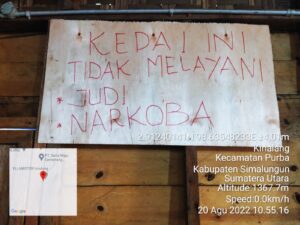 KEDAI INI
TIDAK MELAYANI
* JUDI
* NARKOBA
Kinalang
Kecamatan Purba
Kabupaten Simalungun
Sumatera Utara
Altitude:1367.7m
Speed:0.0km/h
20 Agu 2022 10.55.16
Google